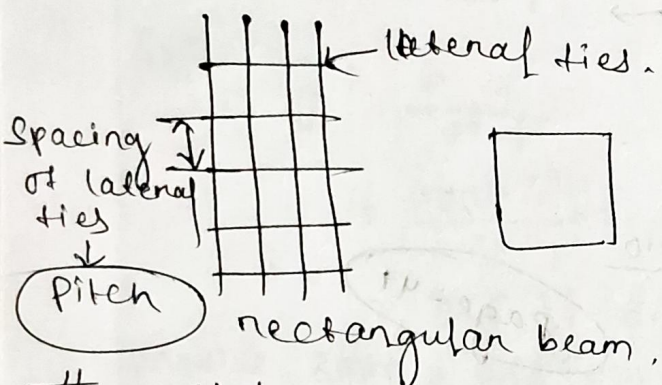 lateral ties.
Spacing
of lateral
ties
Pitch
rectangular beam.